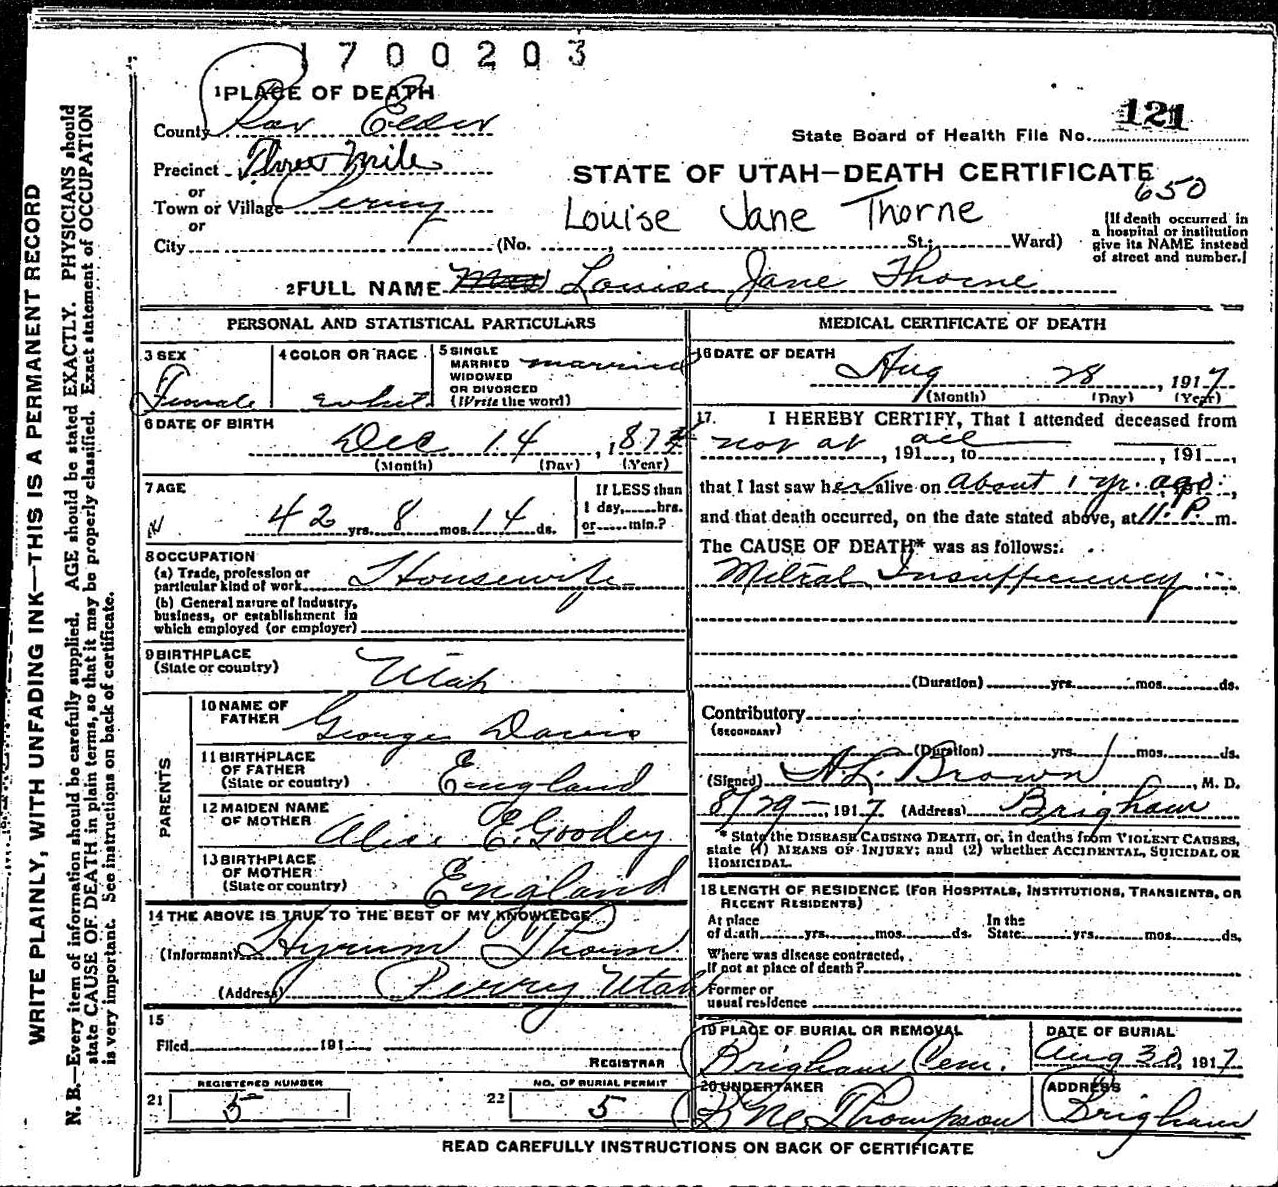 1700203
1 PLACE OF DEATH
County Box Elder
State Board of Health File No. 121
Precinct Three Mile
STATE OF UTAH—DEATH CERTIFICATE
650
or
Town or Village Perry
Louise Jane Thorne
or
City (No. , St.; Ward)
[If death occurred in
a hospital or institution
give its NAME instead
of street and number.]
2 FULL NAME Mrs Louise Jane Thorne
PERSONAL AND STATISTICAL PARTICULARS
3 SEX
Female
4 COLOR OR RACE
white
5 SINGLE
MARRIED
WIDOWED
OR DIVORCED
(Write the word)
married
6 DATE OF BIRTH
Dec 14, 187
(Month) (Day) (Year)
7 AGE
42 yrs. 8 mos. 14 ds.
If LESS than
1 day, hrs.
or min.?
8 OCCUPATION
(a) Trade, profession or
particular kind of work Housewife
(b) General nature of Industry,
business, or establishment in
which employed (or employer)
9 BIRTHPLACE
(State or country) Utah
PARENTS
10 NAME OF
FATHER George Davis
11 BIRTHPLACE
OF FATHER
(State or country) England
12 MAIDEN NAME
OF MOTHER Alice E. Goodey
13 BIRTHPLACE
OF MOTHER
(State or country) England
14 THE ABOVE IS TRUE TO THE BEST OF MY KNOWLEDGE
(Informant) Hyrum Thorn
(Address) Perry Utah
15
Filed 191
REGISTRAR
REGISTERED NUMBER
21 5
NO. OF BURIAL PERMIT
22 5
MEDICAL CERTIFICATE OF DEATH
16 DATE OF DEATH
Aug 28, 1917
(Month) (Day) (Year)
17. I HEREBY CERTIFY, That I attended deceased from
not at all, 191, to , 191,
that I last saw her alive on about 1 yr. ago,
and that death occurred, on the date stated above, at 11. P. m.
The CAUSE OF DEATH* was as follows:
Mitral Insufficiency
(Duration) yrs. mos. ds.
Contributory
(SECONDARY)
(Duration) yrs. mos. ds.
(Signed) A L. Brown, M. D.
8/29 - 1917 (Address) Brigham
* State the DISEASE CAUSING DEATH, or, in deaths from VIOLENT CAUSES,
state (1) MEANS OF INJURY; and (2) whether ACCIDENTAL, SUICIDAL OR
HOMICIDAL.
18 LENGTH OF RESIDENCE (FOR HOSPITALS, INSTITUTIONS, TRANSIENTS, OR
RECENT RESIDENTS)
At place
of death yrs. mos. ds.
In the
State yrs. mos. ds.
Where was disease contracted,
If not at place of death?
Former or
usual residence
19 PLACE OF BURIAL OR REMOVAL
Brigham Cem.
DATE OF BURIAL
Aug 30, 1917
20 UNDERTAKER
Thompson
ADDRESS
Brigham
READ CAREFULLY INSTRUCTIONS ON BACK OF CERTIFICATE
WRITE PLAINLY, WITH UNFADING INK—THIS IS A PERMANENT RECORD
N. B.—Every item of information should be carefully supplied. AGE should be stated EXACTLY. PHYSICIANS should
state CAUSE OF DEATH in plain terms, so that it may be properly classified. Exact statement of OCCUPATION
is very important. See instructions on back of certificate.